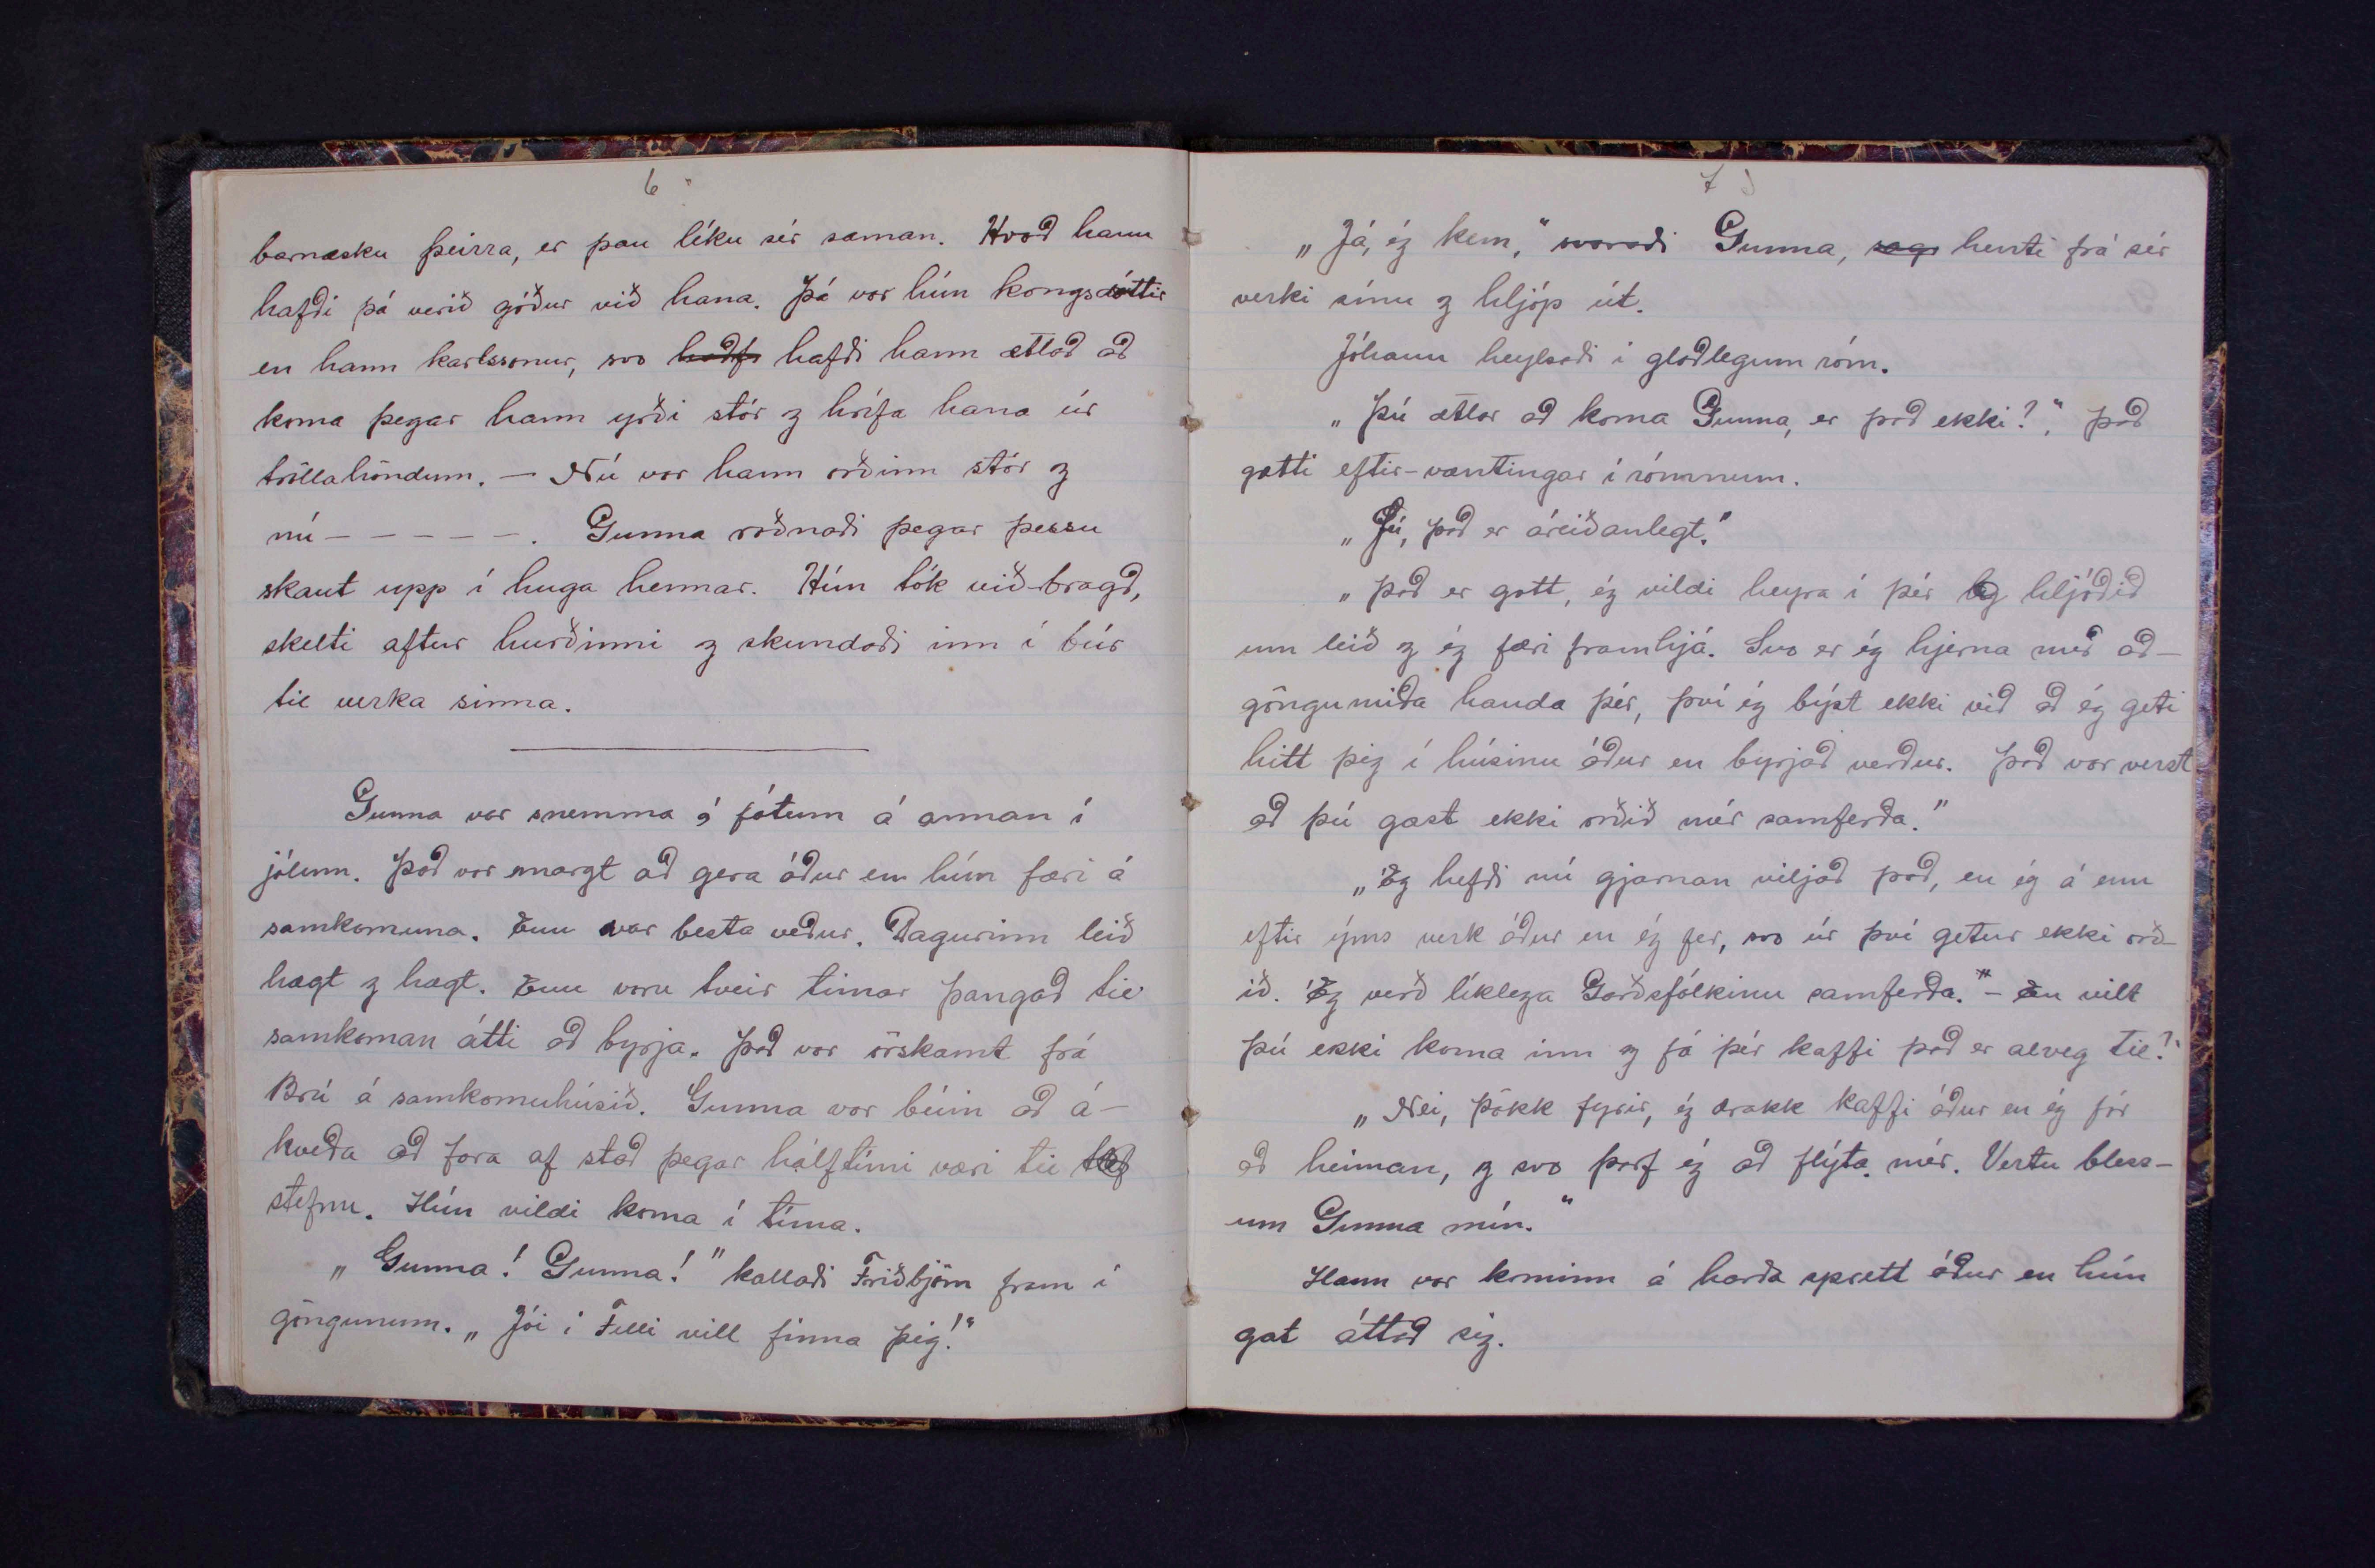 6
barnæsku þeirra, er þau léku sér saman. Hvað hann
hafði þá verið góður við hana. Þá var hún kongsdóttir
en hann karlssonur, svo haðf hafði hann ætlað að
koma þegar hann yrði stór og hrífa hana úr
tröllahöndum. — Nú var hann orðinn stór og
nú – – – – – . Gunna roðnaði þegar þessu
skaut upp í huga hennar. Hún tók við-bragð,
skelti aftur hurðinni og skundaði inn í búr
til verka sinna.
Gunna var snemma á fótum á annan í
jólum. Það var margt að gera áður en hún færi á
samkomuna. Enn var besta veður. Dagurinn leið
hægt og hægt. Enn voru tveir tímar þangað til
samkoman átti að byrja. Það var örskamt frá
Brú á samkomuhúsið. Gunna var búin að á-
kveða að fara af stað þegar hálftími væri til
stefnu. Hún vildi koma í tíma.
„Gunna! Gunna!" kallaði Friðbjörn fram í
göngunum. „Jói í Felli vill finna þig!"
7
„Já, ég kem," svaraði Gunna, sagr henti frá sér
verki sínu og hljóp út.
Jóhann heylsaði í glaðlegum róm.
„Þú ætlar að koma Gunna, er það ekki?". Það
gætti eftir-væntingar í rómnum.
„Jú, það er áreiðanlegt."
„Það er gott, ég vildi heyra í þér hljóðið
um leið og ég færi framhjá. Svo er ég hjerna með að-
göngumiða handa þér, því ég býst ekki við að ég geti
hitt þig í húsinu áður en byrjað verður. Það var verst
að þú gast ekki orðið mér samferða."
„Ég hefði nú gjarnan viljað það, en ég á enn
eftir ýms verk áður en ég fer, svo úr því getur ekki orð-
ið. Ég verð líklega Garðsfólkinu samferða." – En vilt
þú ekki koma inn og fá þér kaffi það er alveg til?"
„Nei, þökk fyrir, ég drakk kaffi áður en ég fór
að heiman, og svo þarf ég að flýta mér. Vertu bless-
um Gunna mín."
Hann var kominn á harða sprett áður en hún
gat áttað sig.